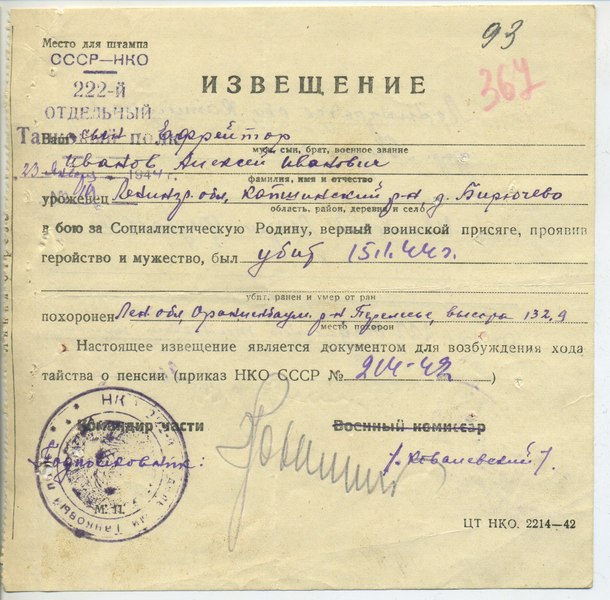 93
367
Место для штампа
СССР—НКО
222-й
ОТДЕЛЬНЫЙ
Танковый полк
ИЗВЕЩЕНИЕ
Ваш сын Ефрейтор
муж, сын, брат, военное звание
Иванов Алексей Иванович
23 января 1944 г.
фамилия, имя и отчество
уроженец Ленингр. обл, р-н д. Бирючево
область, район, деревня и село
в бою за Социалистическую Родину, верный воинской присяге, проявив
геройство и мужество, был убит 15.1.44г.
убит, ранен и умер от ран
похоронен Лен. обл, Ораниенбаум. р-н высота 132,9
место похорон
Настоящее извещение является документом для возбуждения хода
тайства о пенсии (приказ НКО СССР № 214-42)
Командир части Военный комиссар
Подполковник: /Ковалевский/.
М. П.
ЦТ НКО. 2214—42